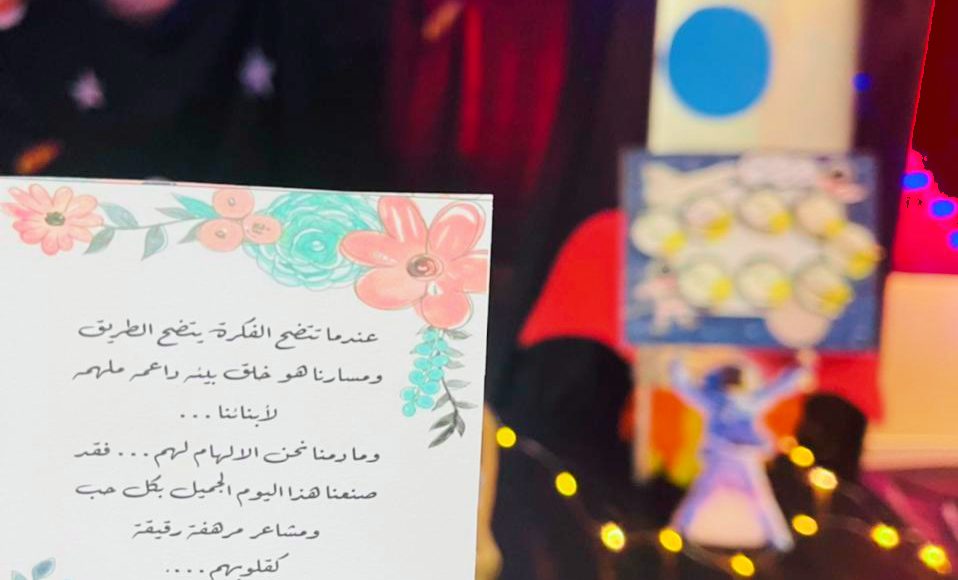 عندما تتضح الفكرة يتضح الطريق
ومسارنا هو خلق بيئه داعمه ملهمه
لأبنائنا ...
وما دمنا نحن الالهام لهم ... فقد
صنعنا هذا اليوم الجميل بكل حب
ومشاعر مرهفة رقيقة
كقلوبهم ....